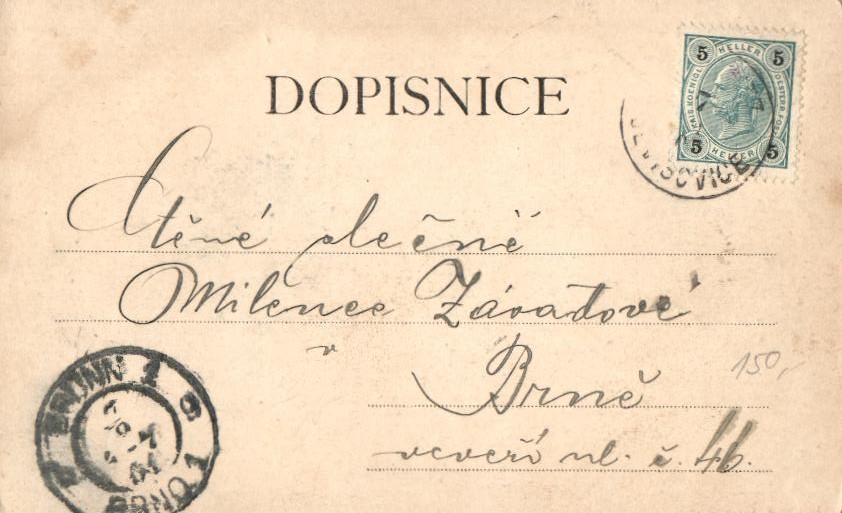 DOPISNICE
5 HELLER 5
KAIS. KOENIGL. OESTERR. POST
5 HELLER 5
JEVIŠOVICE
Ctěné slečně
Milence Závadové
v
Brně
150,-
veveří ul. č. 46.
BRÜNN 1
BRNO 1